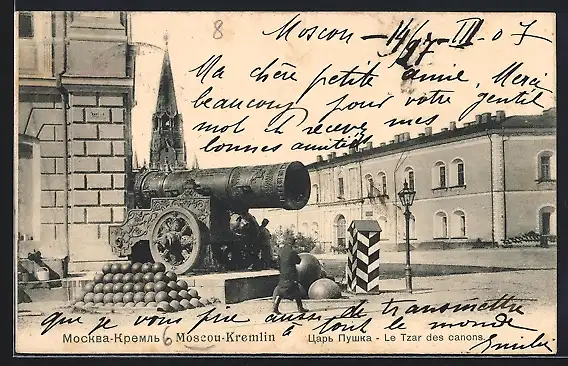 8
Moscou - 14/27 - III - 07
Ma chère petite amie, Merci
beaucoup pour votre gentil
mot et recevez mes
bonnes amitiés
que je vous prie aussi de transmettre
à tout le monde
Emilie
Москва-Кремль 6 Moscou-Kremlin
Царь Пушка - Le Tzar des canons.